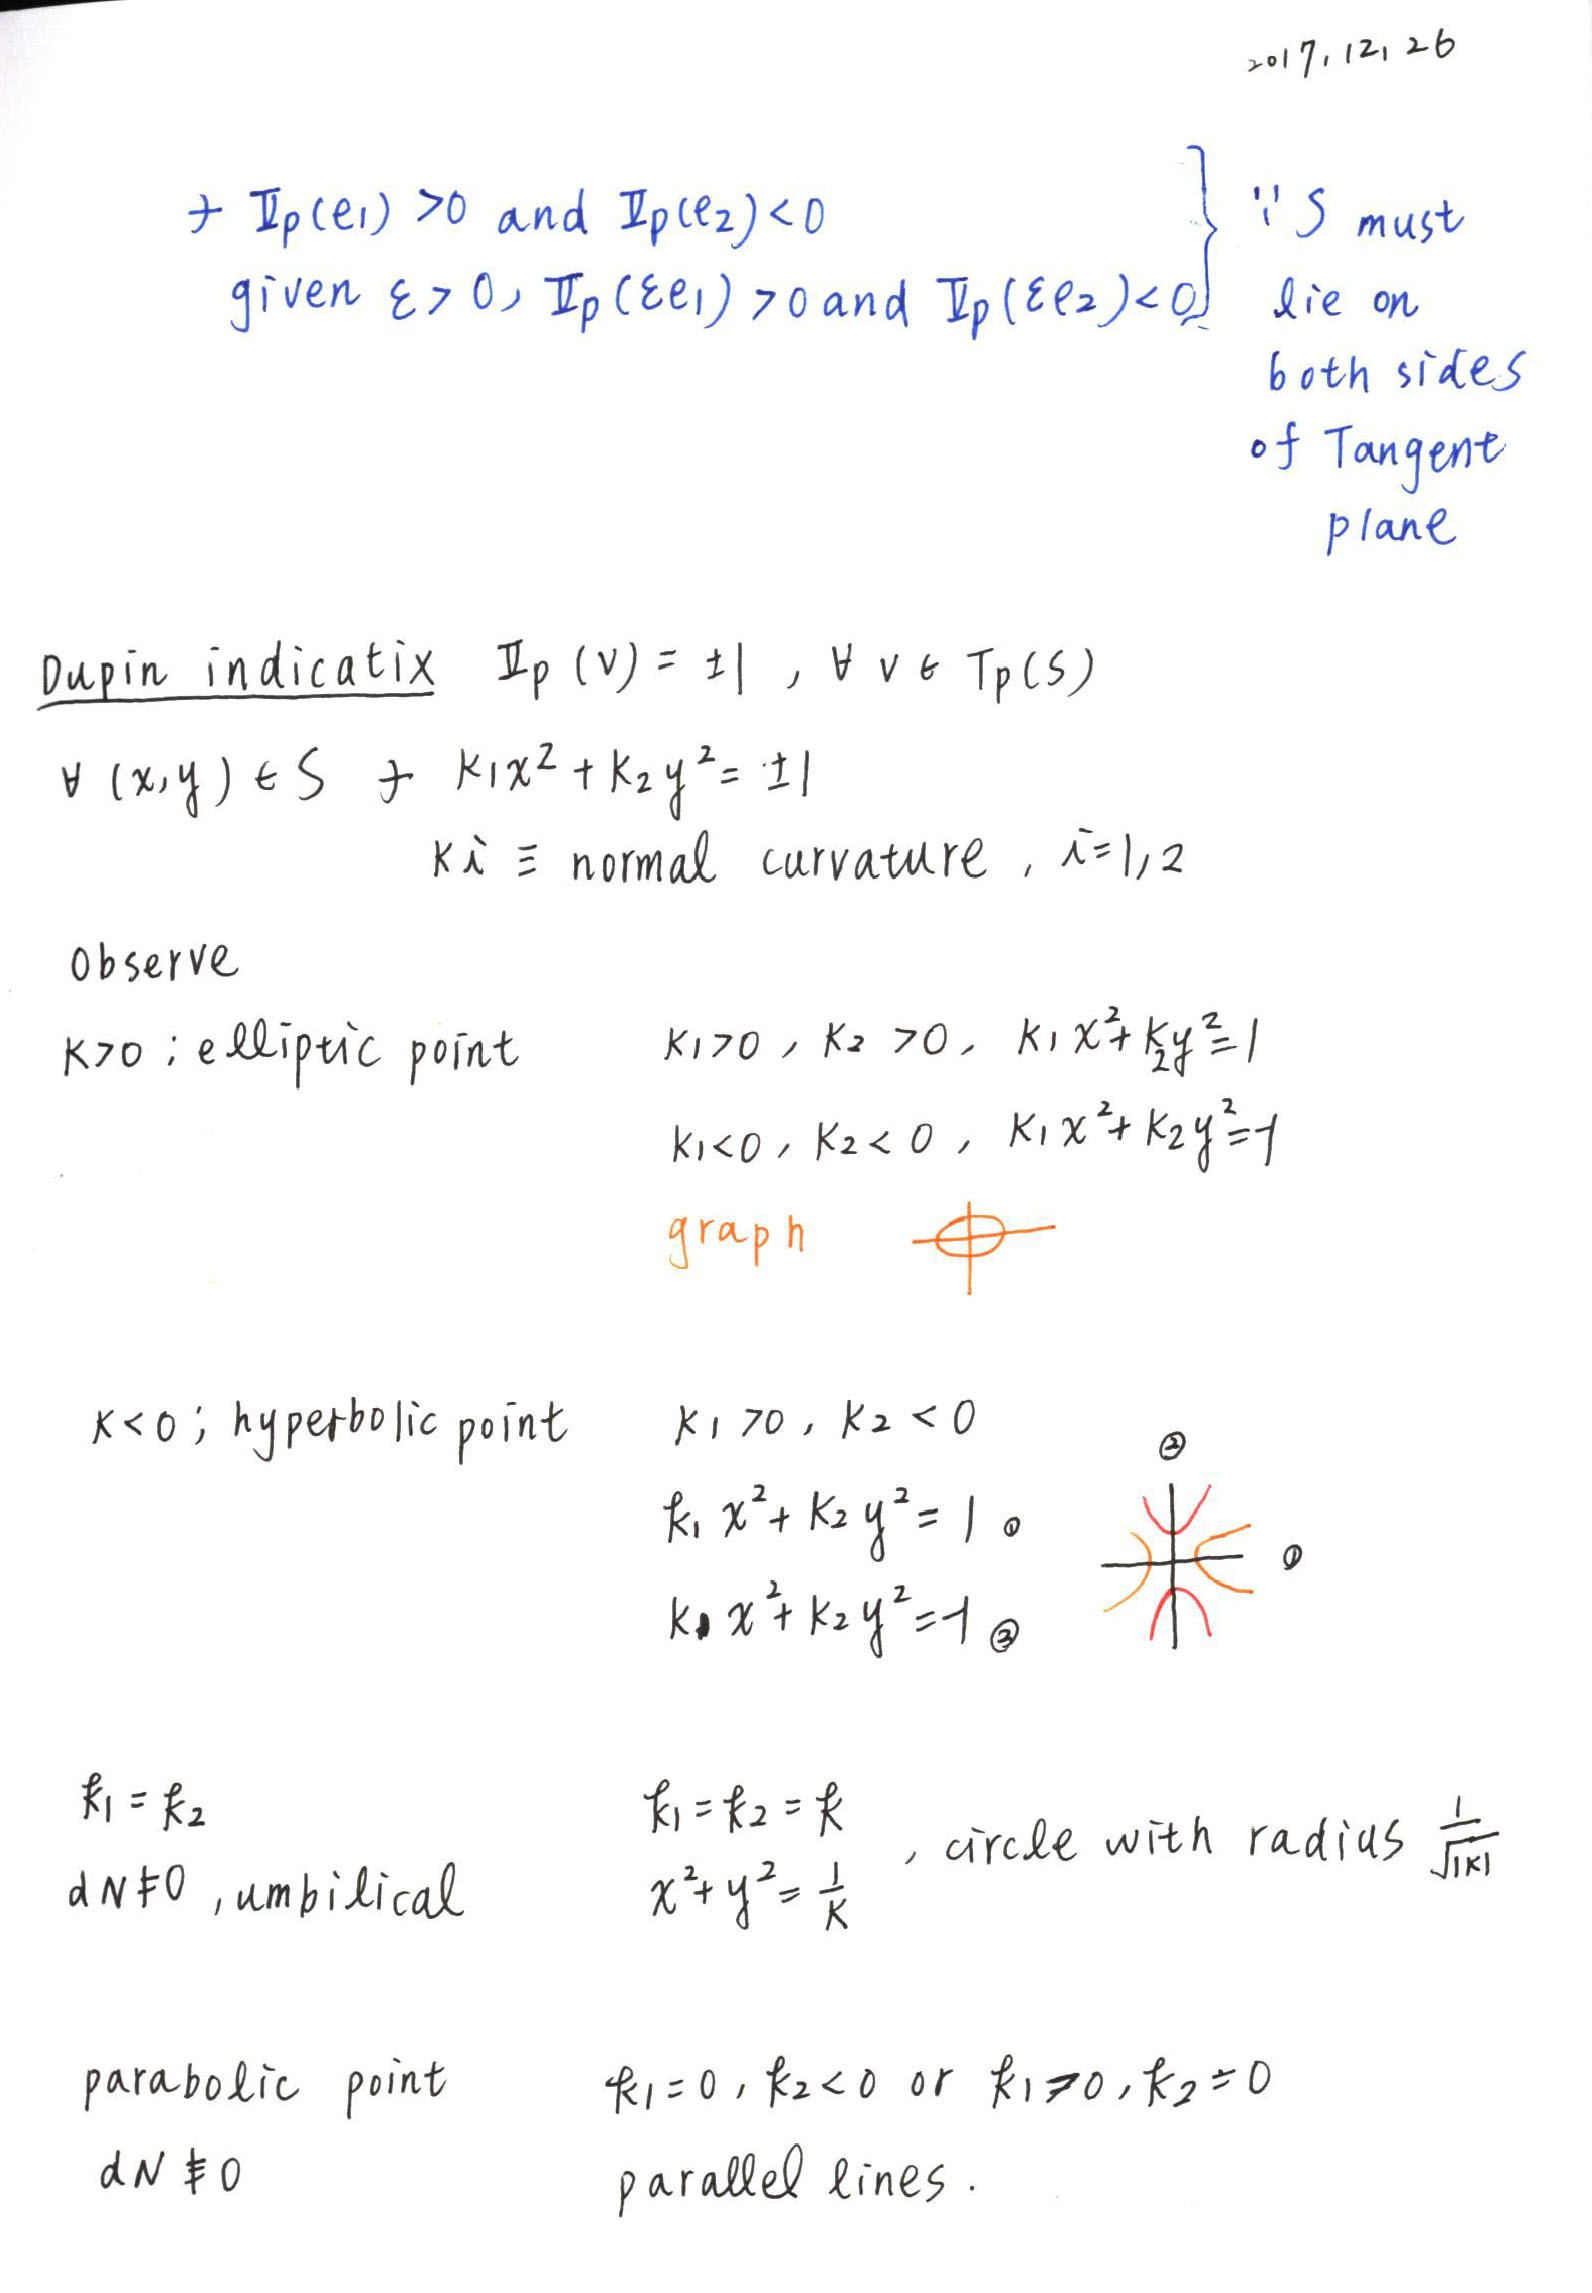 2017, 12, 26
∃ Ⅱp(e1) >0 and Ⅱp(e2)<0
given ε>0, Ⅱp(εe1) >0 and Ⅱp(εe2)<0
∵ S must
lie on
both sides
of Tangent
plane
Dupin indicatix Ⅱp (v) = ±1 , ∀ v ∈ Tp(S)
∀ (x,y) ∈ S ∃ k1x² + k2y² = ±1
ki ≡ normal curvature , i=1,2
observe
K>0 ; elliptic point k1>0 , k2 >0, k1x²+k2y²=1
k1<0, k2<0 , k1x²+k2y²=-1
graph
K<0 ; hyperbolic point k1 >0, k2 <0
②
k1x²+k2y²=1 ①
①
k1x²+k2y²=-1 ②
k1=k2 k1=k2=k
, circle with radius 1/√|k|
dN≢0 , umbilical x²+y²=1/k
parabolic point k1=0, k2<0 or k1>0, k2=0
dN≢0 parallel lines.